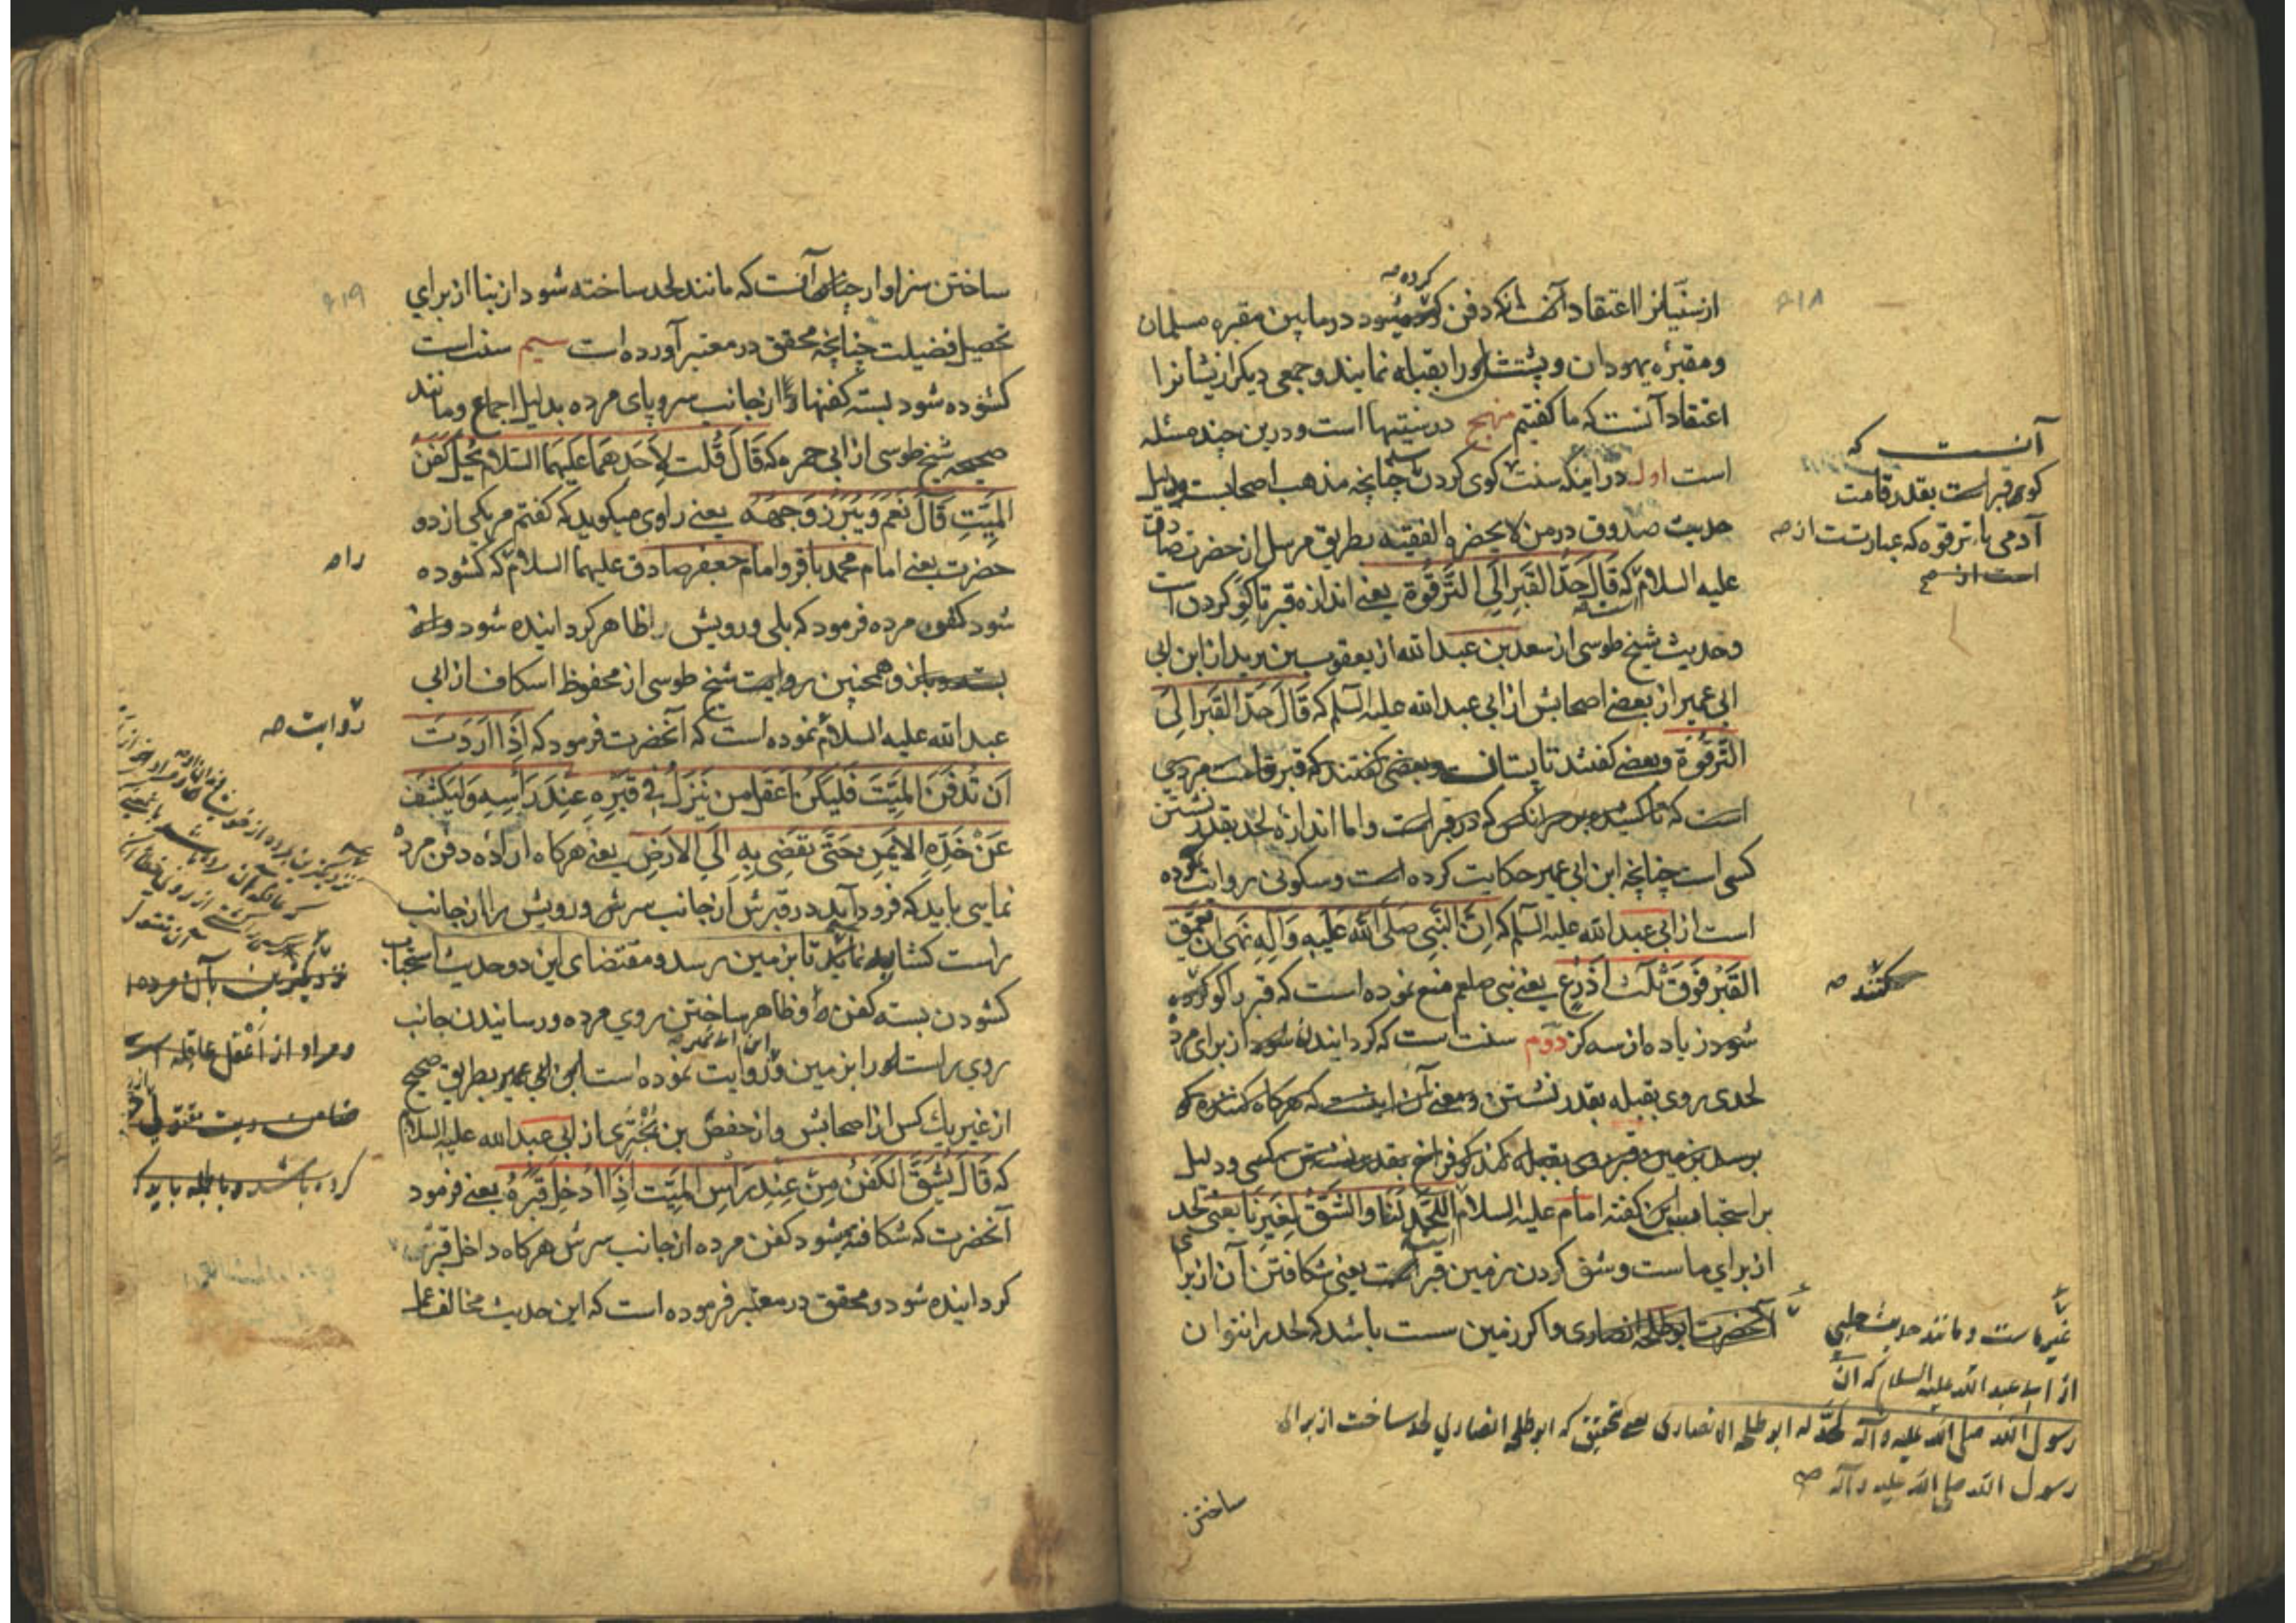 ۶۱۸
کرده صه
از سنّیانرا اعتقاد آنست که دفن میشود در مابین مقبره مسلمان
ومقبرهٔ یهودان و پشتش را بقبله نمایند و جمعی دیکر ازیشانرا
اعتقاد آنست که ما کفتیم منهج در سنیتها است ودرین چند مسئله
است اول در اینکه سنت کوی کردن چنانچه مذهب اصحابست ودلیل
حدیث صدوق در من لا یحضره الفقیه بطریق مرسل از حضرت صادق
علیه السلام که قَالَ حَدُّ القَبرِ اِلَی التَّرقُوَة یعنی اندازه قبر تا کو کردن است
وحدیث شیخ طوسی از سعد بن عبد الله از یعقوب بن یزید از ابن ابی
ابی عمیر از بعضی اصحابش از ابی عبد الله علیه السلم که قَالَ حَدّ القَبر اِلَی
التَّرقُوَة وبعضی کفتند تا پستان وبعضی کفتند که قبر قامت مردی
است که تا کشیده بر سر آنکس که در قبر است واما اندازه لحد بقدر نشستن
کسی است چنانچه ابن ابی عمیر حکایت کرده است وسکونی روایت کرده
است از ابی عبد الله علیه السلم که اِنَّ النَّبِی صَلَّی اللّه عَلَیهِ وَآلِهِ نَهَی اَن یُعَمَّق
القَبرُ فَوقَ ثَلَث اَذرُع یعنی نبی صلعم منع نموده است که قبر را کو کرده
شود زیاده از سه کز دوم سنت است که کردانیده شود از برای مرده
لحدی روی بقبله بقدر نشستن ومعنی آن اینست که هرکاه کننده که
برسد بزمین در قبر روی بقبله کند کو فراخ بقدر نشستن کسی ودلیل
بر استحباب این کفته امام علیه السلام اللَّحَدُ لَنَا وَالشَّقُّ لِغَیرِنَا یعنی لحد
از برای ماست وشق کردن زمین قبر است یعنی شکافتن آن از برا
آنحضرت ابوطلحه انصاری واکر زمین سست باشد که لحد را نتوان
آنست که
کوی قبر است بقدر قامت
آدمی یا ترقوه که عبارتست از صه
است از
کنند صه
غیر ماست ومانند حدیث حلبی
از ابی عبد الله علیه السلام که انّ
رسول الله صلی الله علیه وآله لحّد له ابو طلحه الانصاری یعنی بتحقیق که ابو طلحه انصاری لحد ساخت از برای
رسول الله صلی الله علیه وآله صه
ساختن
۶۱۹
ساختن سزاوار چنان آنست که مانند لحد ساخته شود از بنا از برای
تحصیل فضیلت چنانچه محقق در معتبر آورده است سیم سنت است
کشوده شود بسته کفنها از جانب سر وپای مرده بدلیل اجماع ومانند
صحیحه شیخ طوسی از ابی حمزه که قَالَ قُلت لِاَحَدهمَا عَلیهمَا السَّلام یُحَلّ کَفَنُ
المَیّتِ قَالَ نَعَم وَیُبرَز وَجهُهُ یعنی راوی میکوید که کفتم مر یکی از دو
حضرت یعنی امام محمد باقر وامام جعفر صادق علیهما السلام که کشوده
شود کفن مرده فرمود که بلی ورویش را ظاهر کردانیده شود
وهمچنین روایت شیخ طوسی از محفوظ اسکاف از ابی
عبد الله علیه السلام نموده است که آنحضرت فرمود که اِذَا اَرَدتَ
اَن تَدفِنَ المَیّتَ فَلیَکُن اَعقَل مَن یَنزِلُ فِی قَبرِهِ عِندَ رَاسِهِ وَلیَکشِف
عَن خَدِّهِ الاَیمَنِ حَتَّی یُفضِی بِهِ اِلَی الاَرضِ یعنی هرکاه اراده دفن مرده
نمایی باید که فرود آید در قبرش از جانب سرش ورویش را از جانب
راست کشاید تا بزمین رسد ومقتضای این دو حدیث استحباب
کشودن بسته کفن وظاهر ساختن روی مرده ورسانیدن جانب
روی راست او را بزمین وروایت نموده است ابن ابی عمیر بطریق صحیح
از غیر یک کس از اصحابش واز حفص بن بَختَری از ابی عبد الله علیه السلام
که قَالَ یُشَقُّ الکَفَنُ مِن عِندِ رَاسِ المَیّت اِذَا اُدخِلَ قَبرَهُ یعنی فرمود
آنحضرت که شکافته میشود کفن مرده از جانب سرش هرکاه داخل قبرش
کردانیده شود ومحقق در معتبر فرموده است که این حدیث مخالف عمل
راه
روایت صه
نزدیکترین بآن مرده
ومراد از اعقل عاقله است
ضامن دیت مقتول
کرده باشد